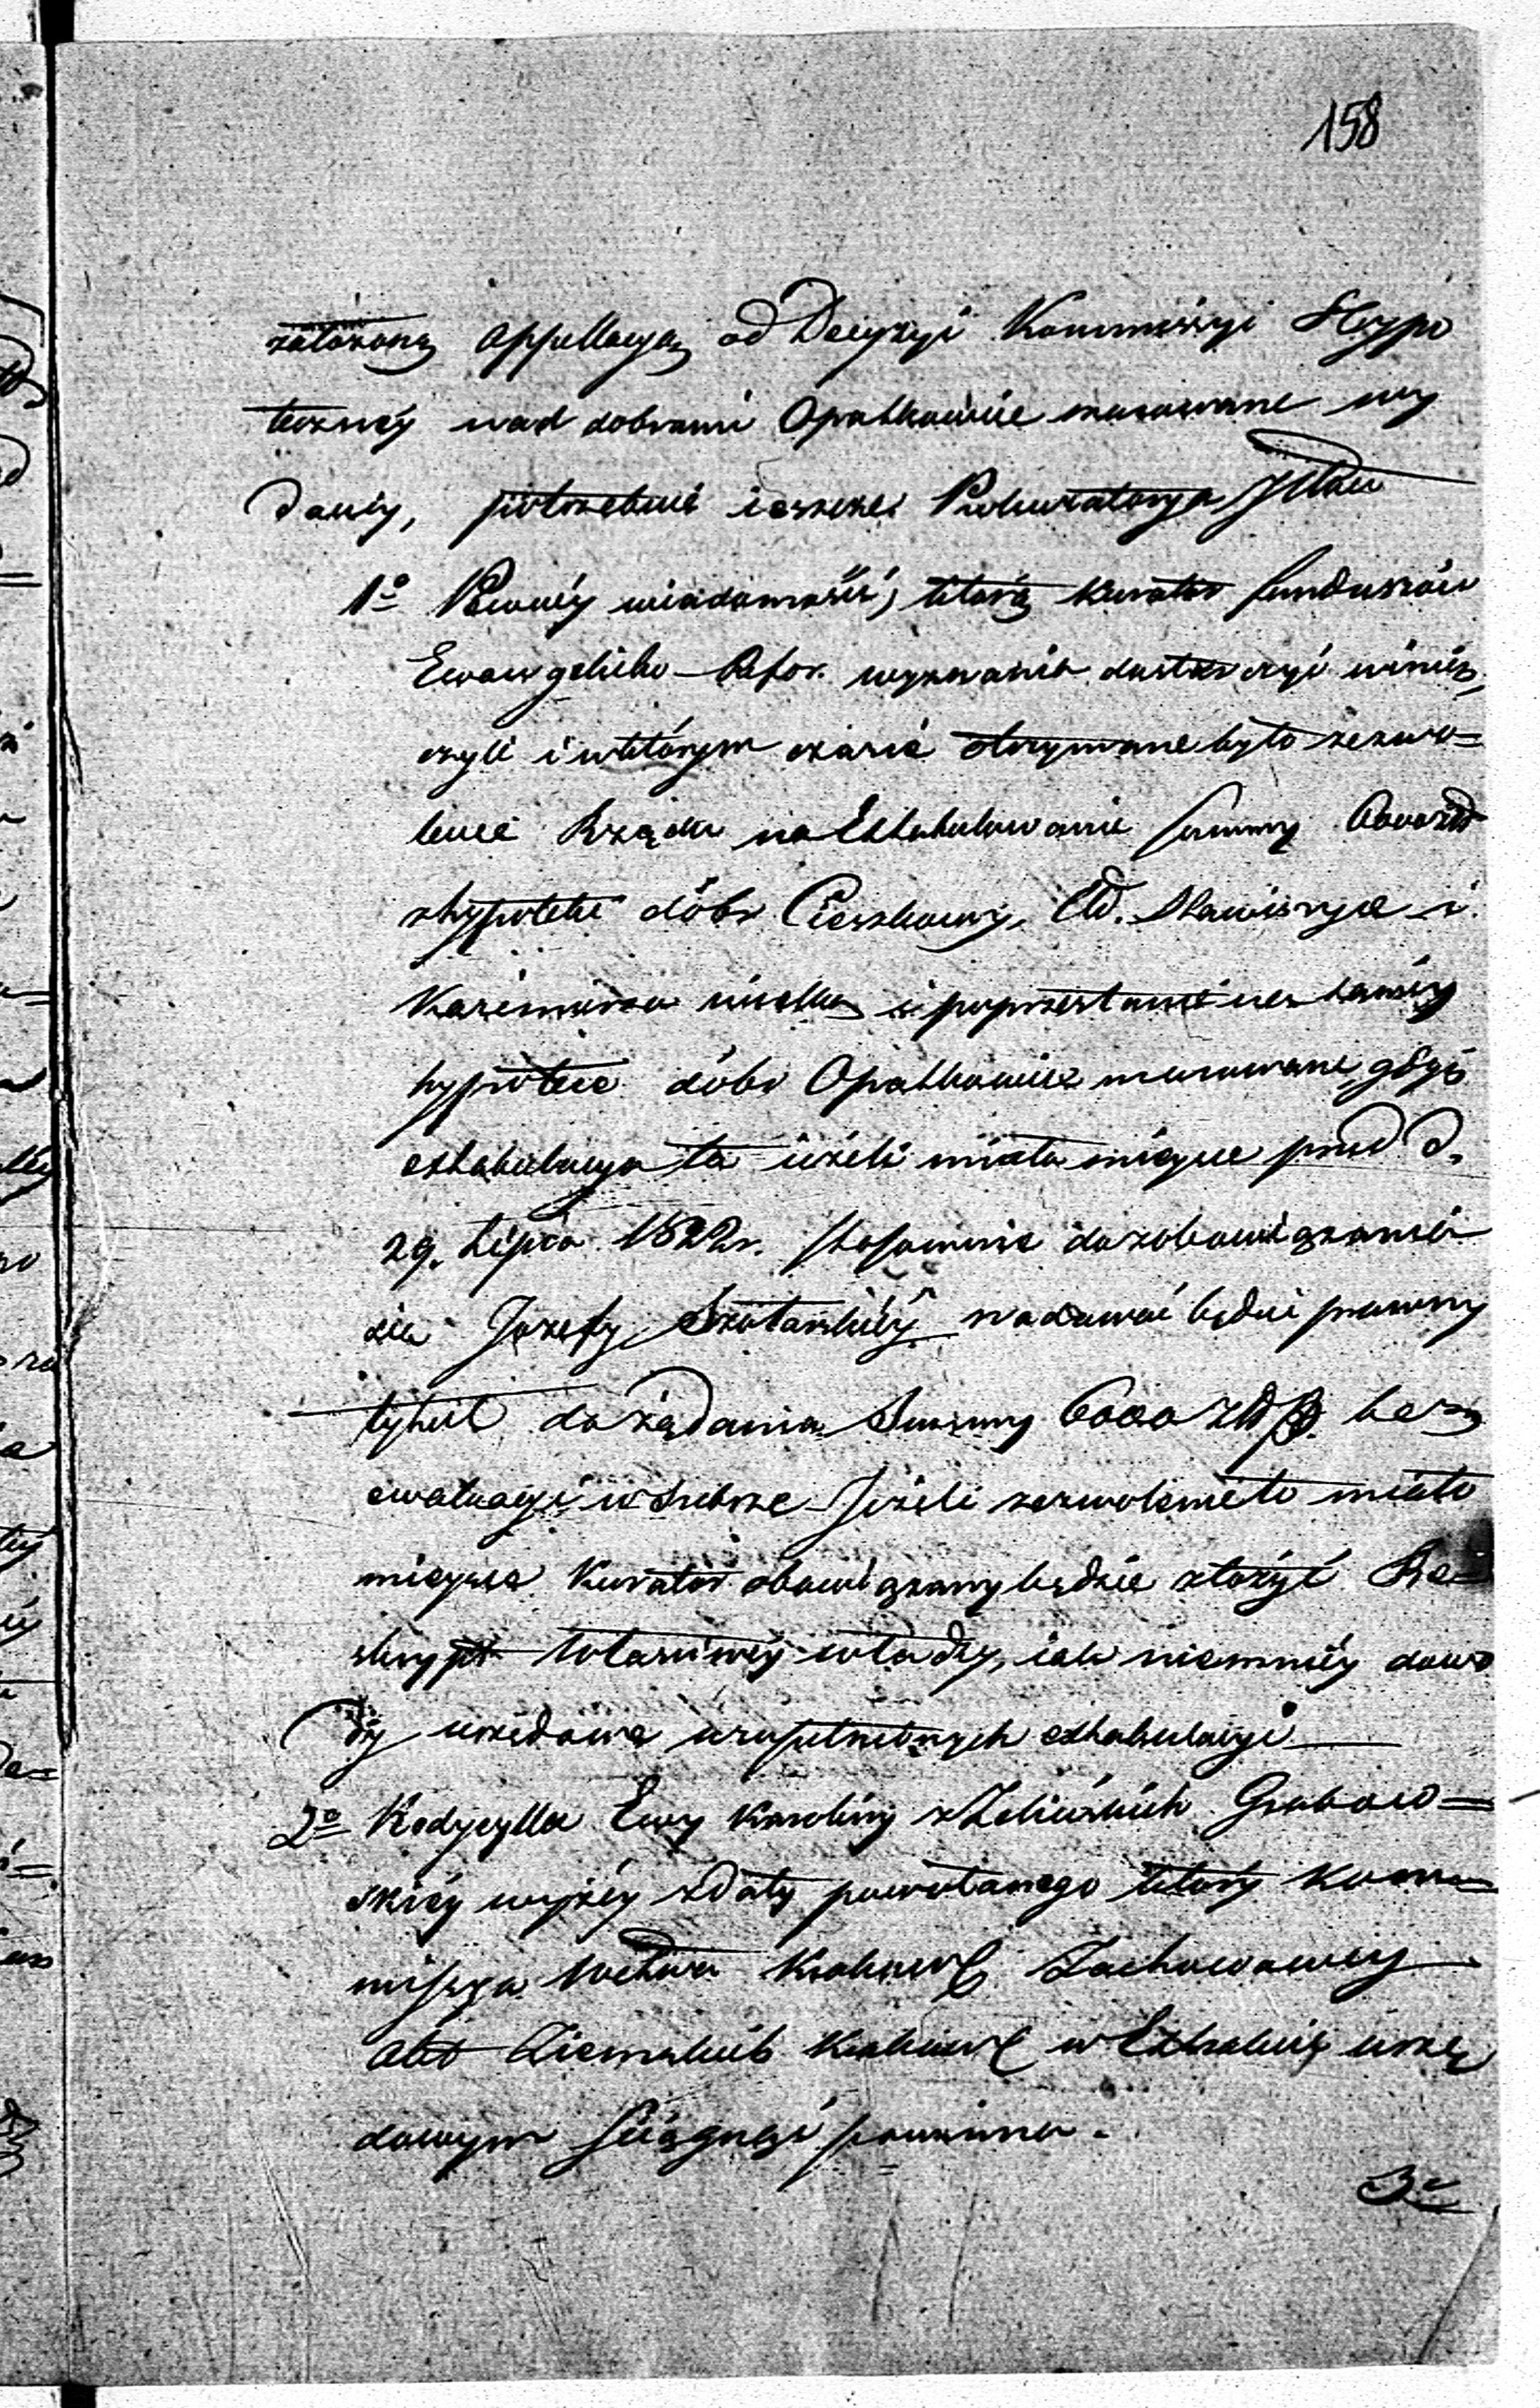 158
założoną appellacyą od Decyzyi Kommissyi Hypo
teczney nad dobrami Opatkowice murowane wy
daney, potrzebuie ieszcze Prokuratorya
1º Pewney wiadomości, którą Kurator funduszów
Ewangelicko-Refor. wyznania dostarczyć winien,
czyli i w którym czasie otrzymane było zezwo=
lenie Rządu na Extabulowanie summy
z hypoteki dóbr Cieszkowy, Sławiszyce i
Kazimierza i poprzestanie na
hypotece dóbr Opatkowice murowane, gdyż
extabulacya ta ieżeli miała mieysce przed d.
29. Lipca 1822 r. stosownie do zobowiązania
się Jozefy nadawać będzie prawny
tytuł do żądania Summy 6000 złp. bez
ewaluacyi w srebrze Jeżeli zezwolenie to miało
mieysce Kurator obowiązany będzie złożyć Re=
skrypt właściwey władzy, iak niemniey dowo
dy urzędowe uzupełnionych extabulacyi
2º Kodycylla Ewy Karoliny z Zeleńskich Grabow=
skiey wyżey z daty powołanego który Kom=
missya Wdztwa Krakows Zachowawczey
Akt Ziemskich Krakows w Extrakcie urzę
dowym sciągnąć powinna.
3º